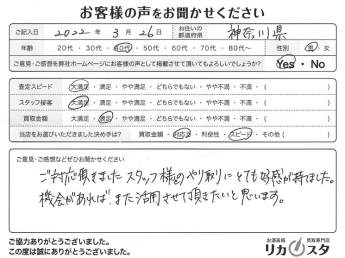 お客様の声をお聞かせください
ご記入日 2022 年 3 月 26 日 お住いの都道府県 神奈川県
年齢 20代・30代・40代・50代・60代・70代・80代〜 性別 男・女
ご意見・ご感想を弊社ホームページにお客様の声として掲載させて頂いてもよろしいでしょうか? Yes・No
査定スピード 大満足・満足・やや満足・どちらでもない・やや不満・不満・( )
スタッフ接客 大満足・満足・やや満足・どちらでもない・やや不満・不満・( )
買取金額 大満足・満足・やや満足・どちらでもない・やや不満・不満・( )
当店をお選びいただきました決め手は? 買取金額・対応力・利便性・スピード・その他( )
ご意見・ご感想などぜひお聞かせください
ご対応頂きましたスタッフ様のやり取りにとても好感が持てました。
機会があれば、また活用させて頂きたいと思います。
ご協力ありがとうございました。
この度は誠にありがとうございました。
お酒高価買取専門店
リカスタ